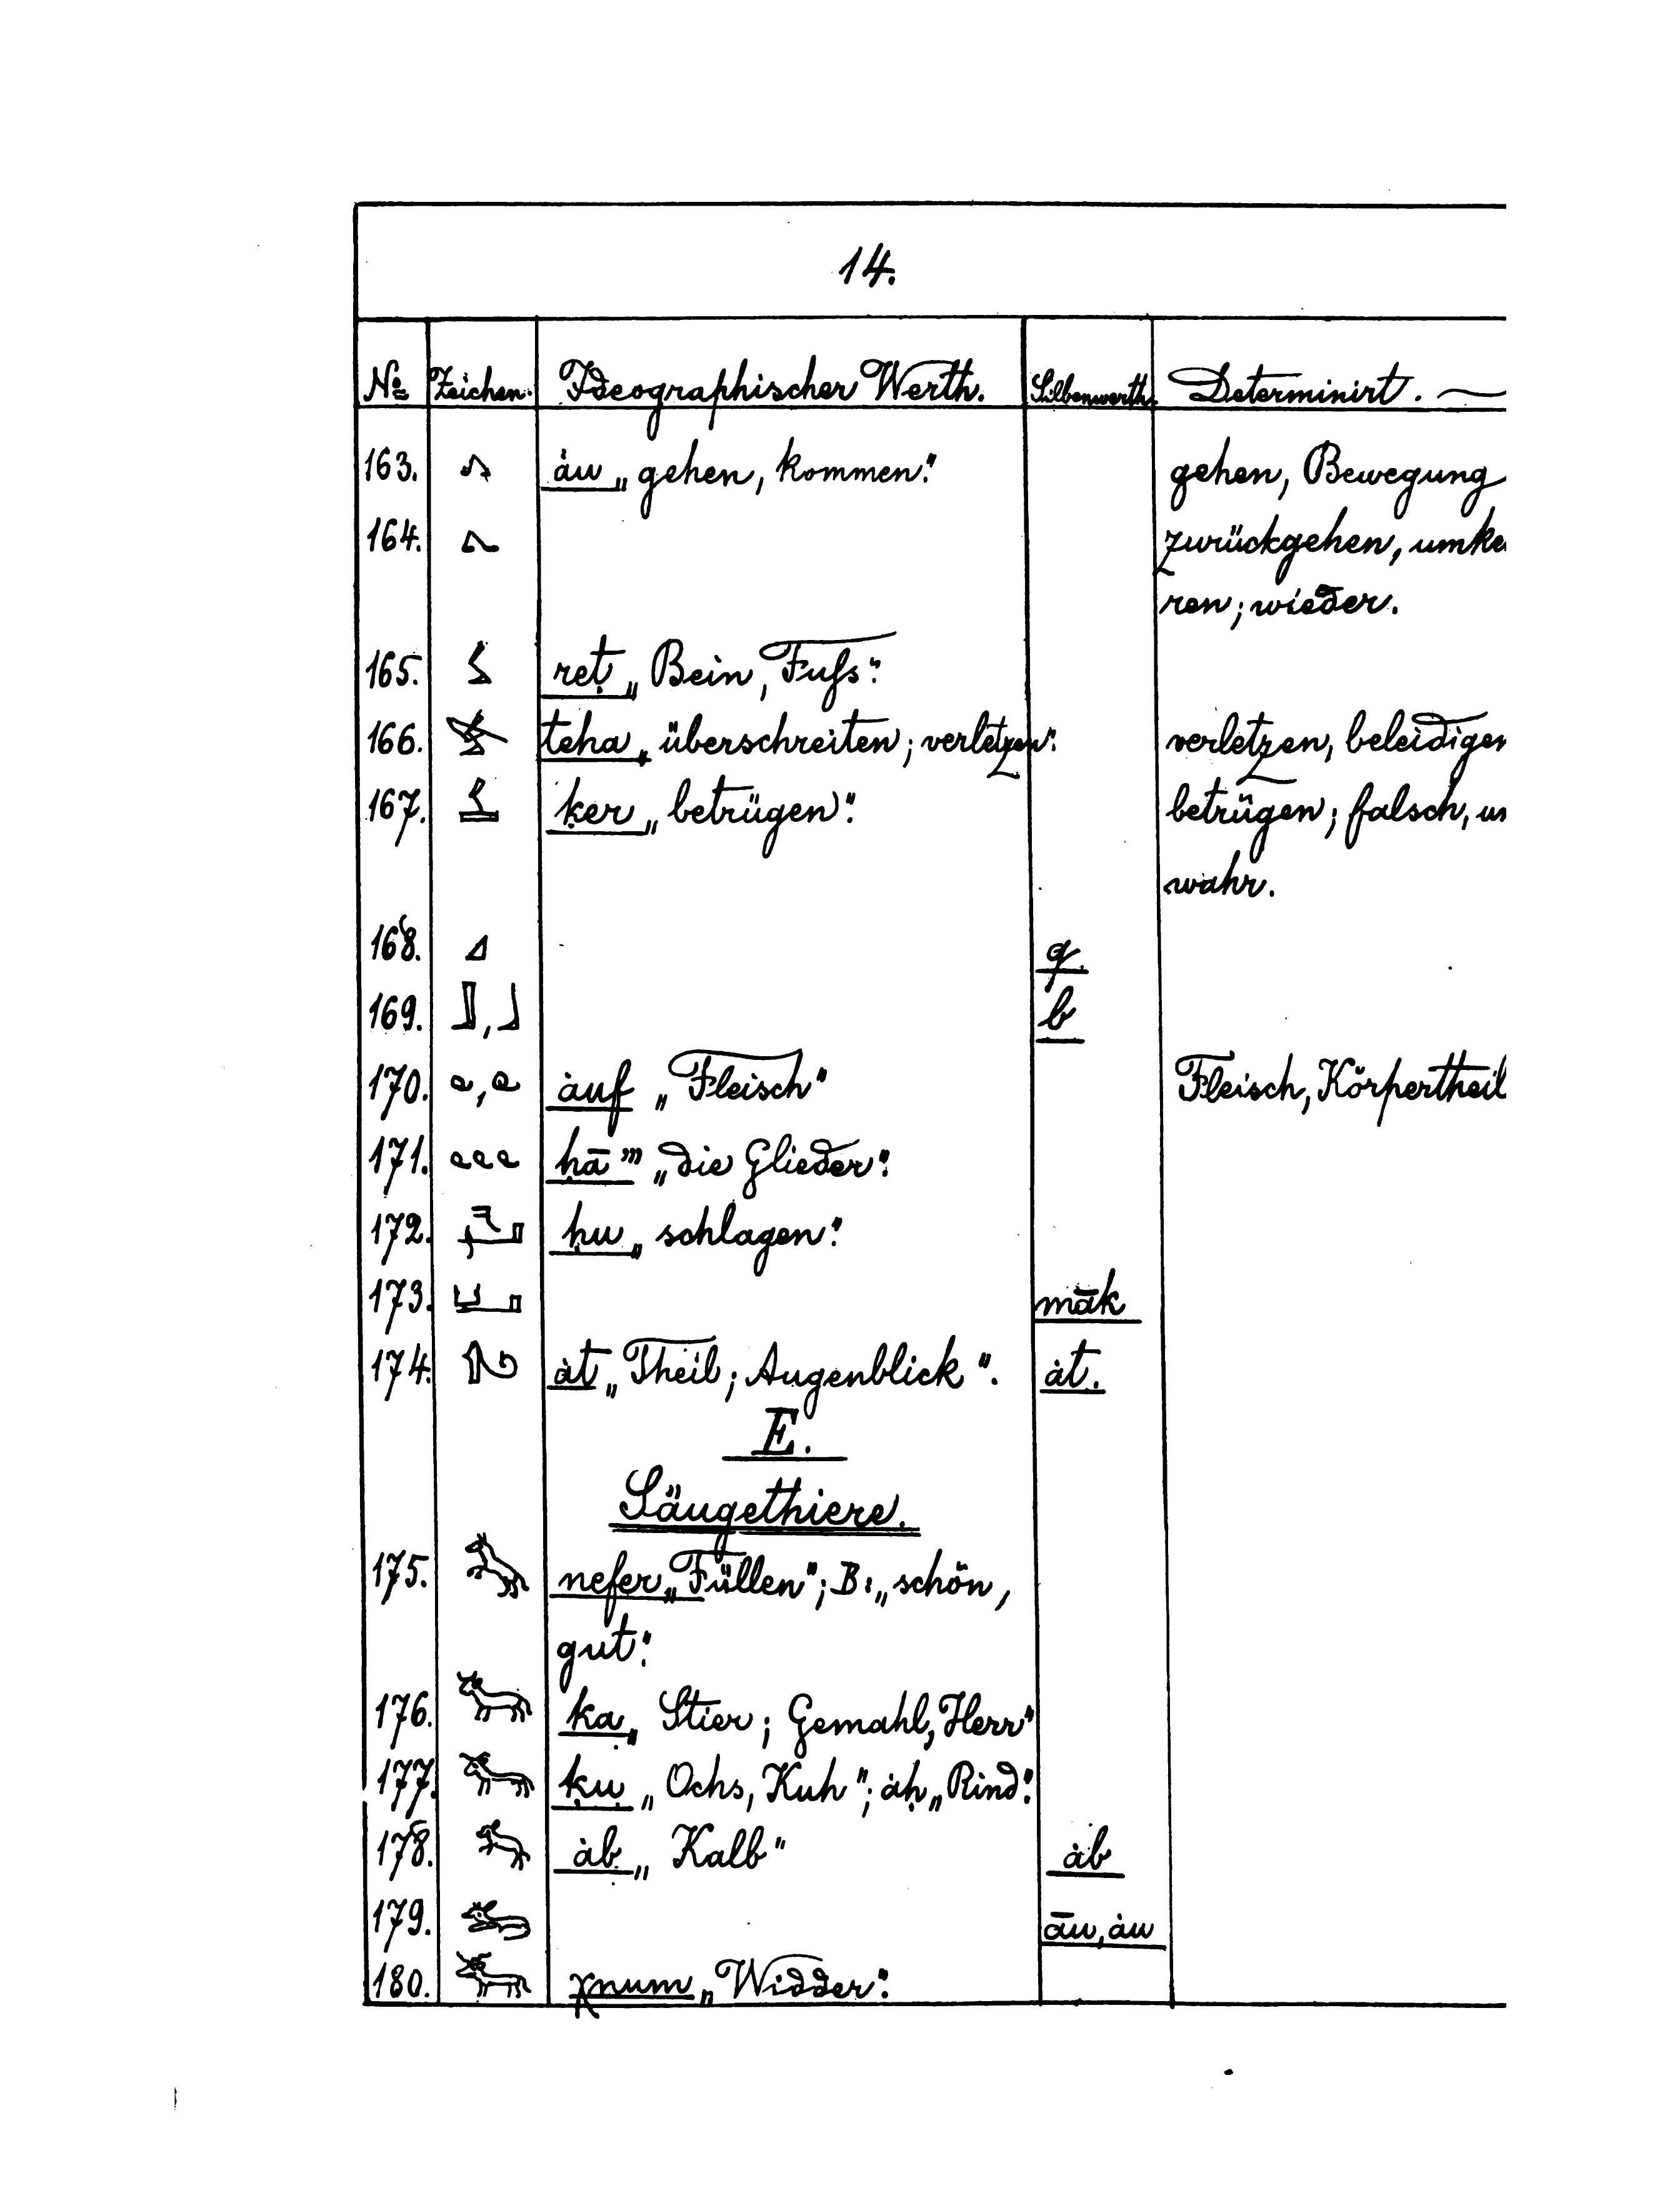 14.
No Zeichen. Ideographischer Werth. Silbenwerth. Determinirt.
163. ȧu „gehen, kommen“. gehen, Bewegung
164. zurückgehen, umke
ren; wieder.
165. reṭ „Bein, Fuſs“.
166. teha „überschreiten; verletzen“. verletzen, beleidigen
167. ḳer „betrügen“. betrügen; falsch, un
wahr.
168. q.
169. , b
170. , ȧuf „Fleisch“ Fleisch, Körpertheil
171. ḥā''' „die Glieder“.
172. ḥu „schlagen“.
173. māk
174. ȧt „Theil; Augenblick“. ȧt.
E.
Säugethiere.
175. nefer „Füllen“; B: „schön,
gut“.
176. ka „Stier; Gemahl, Herr“
177. ḳu „Ochs, Kuh“; ȧḥ „Rind“.
178. ȧb „Kalb“ ȧb
179. āu, ȧu
180. χnum „Widder“.